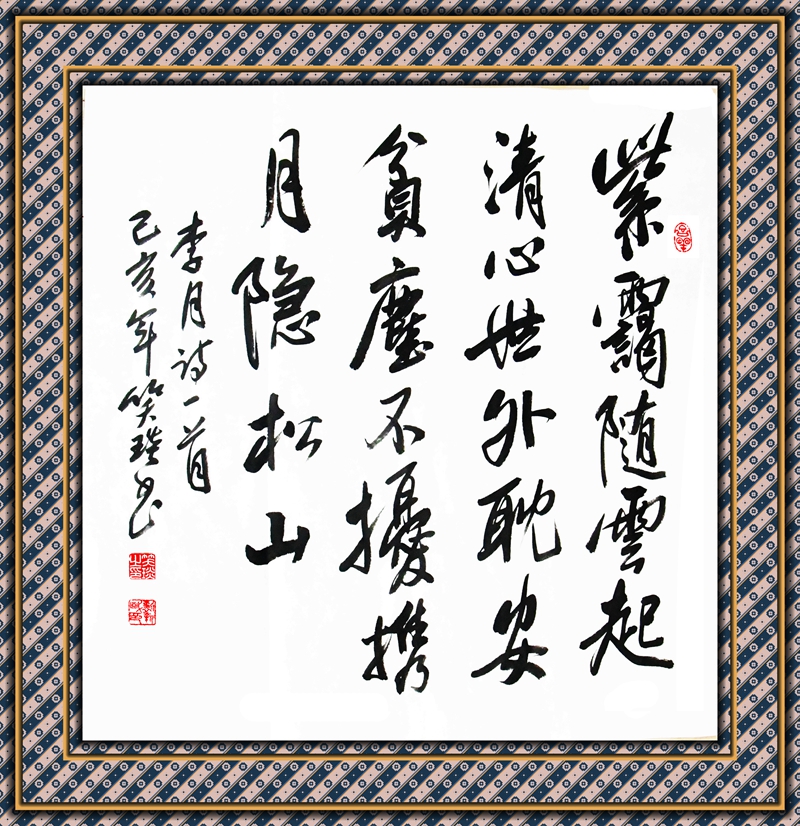 紫靄随雲起
清心世外耽安
貧塵不擾携
月隐松山
李月诗一首
己亥年笑书